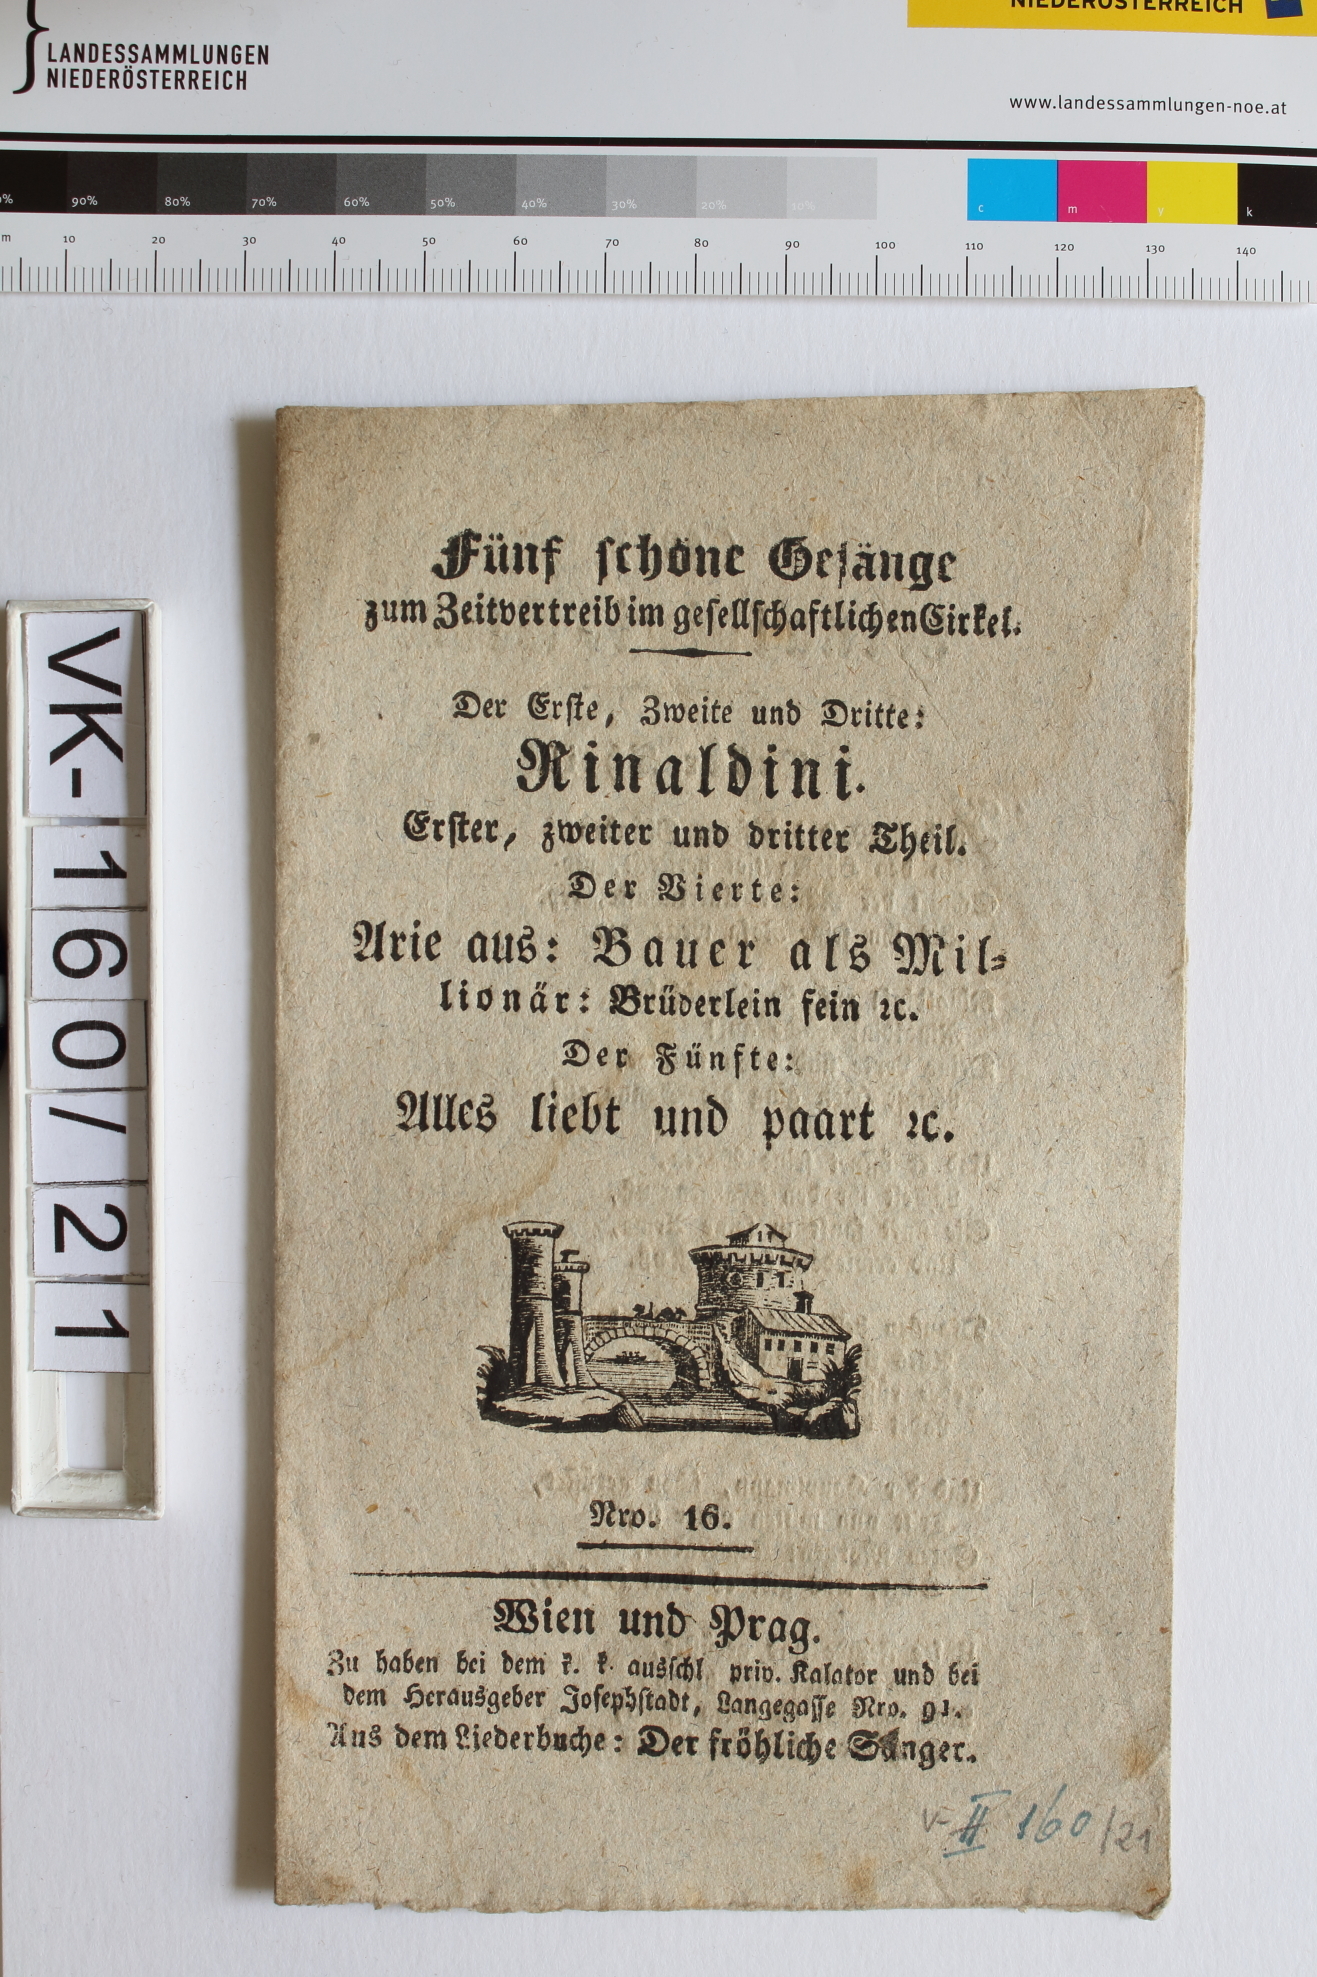 NIEDERÖSTERREICH
LANDESSAMMLUNGEN
NIEDERÖSTERREICH
www.landessammlungen-noe.at
90% 80% 70% 60% 50% 40% 30% 20% 10%
c m y k
10 20 30 40 50 60 70 80 90 100 110 120 130 140
VK-160/21
Fünf schöne Gesänge
zum Zeitvertreib im gesellschaftlichen Cirkel.
Der Erste, Zweite und Dritte:
Rinaldini.
Erster, zweiter und dritter Theil.
Der Vierte:
Arie aus: Bauer als Mil-
lionär: Brüderlein fein ꝛc.
Der Fünfte:
Alles liebt und paart ꝛc.
Nro. 16.
Wien und Prag.
Zu haben bei dem k. k. ausschl priv. Kalator und bei
dem Herausgeber Josephstadt, Langegasse Nro. 91.
Aus dem Liederbuche: Der fröhliche Sänger.
V- II 160/21